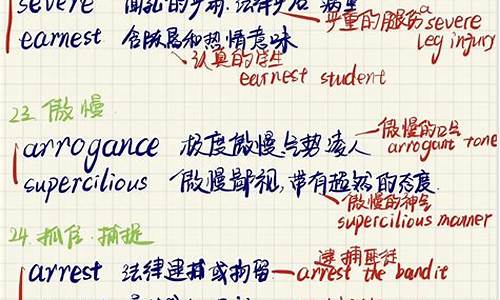 severe
严重的腿伤 a severe leg injury
earnest 含
和热情意味
认真的学生
earnest student
23. 傲慢
arrogance 极度傲慢.气势凌人
傲慢的口气
arrogant tone
supercilious 傲慢鄙视,带有超然的态度
傲慢的神气
supercilious manner
24. 抓住.捕捉
arrest 法律逮捕或拘留
逮捕匪徒
arrest the bandit